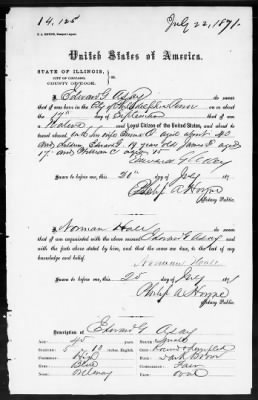 14,125
July 22, 1871.
United States of America.
STATE OF ILLINOIS,
CITY OF CHICAGO,
COUNTY OF COOK.
I, Edward G. Asay do swear
that I was born in the City of Philadelphia on or about
the day of September
that I am a Native and Loyal Citizen of the United States, and about
to travel abroad with his wife Emma C aged about 40
and children Edward G 19 years old James F aged
17 and William C aged 15
Edward G Asay
Sworn to before me, this 21st day of July 1871
Philip A Hoyne
Notary Public.
I, Norman Hall do swear
that I am acquainted with the above named Edward G Asay and
with the facts above stated by him, and that the same are true, to the best of my
knowledge and belief
Norman Hall
Sworn to before me, this 25 day of July 1871
Philip A Hoyne
Notary Public.
Description of Edward G Asay
Age: 45 years
Stature: 5 10 inches, English.
Forehead: High
Eyes: Blue
Nose: Ordinary
Mouth: Small
Chin: Round & dimpled
Hair: Dark Brown
Complexion: Fair
Face: Oval